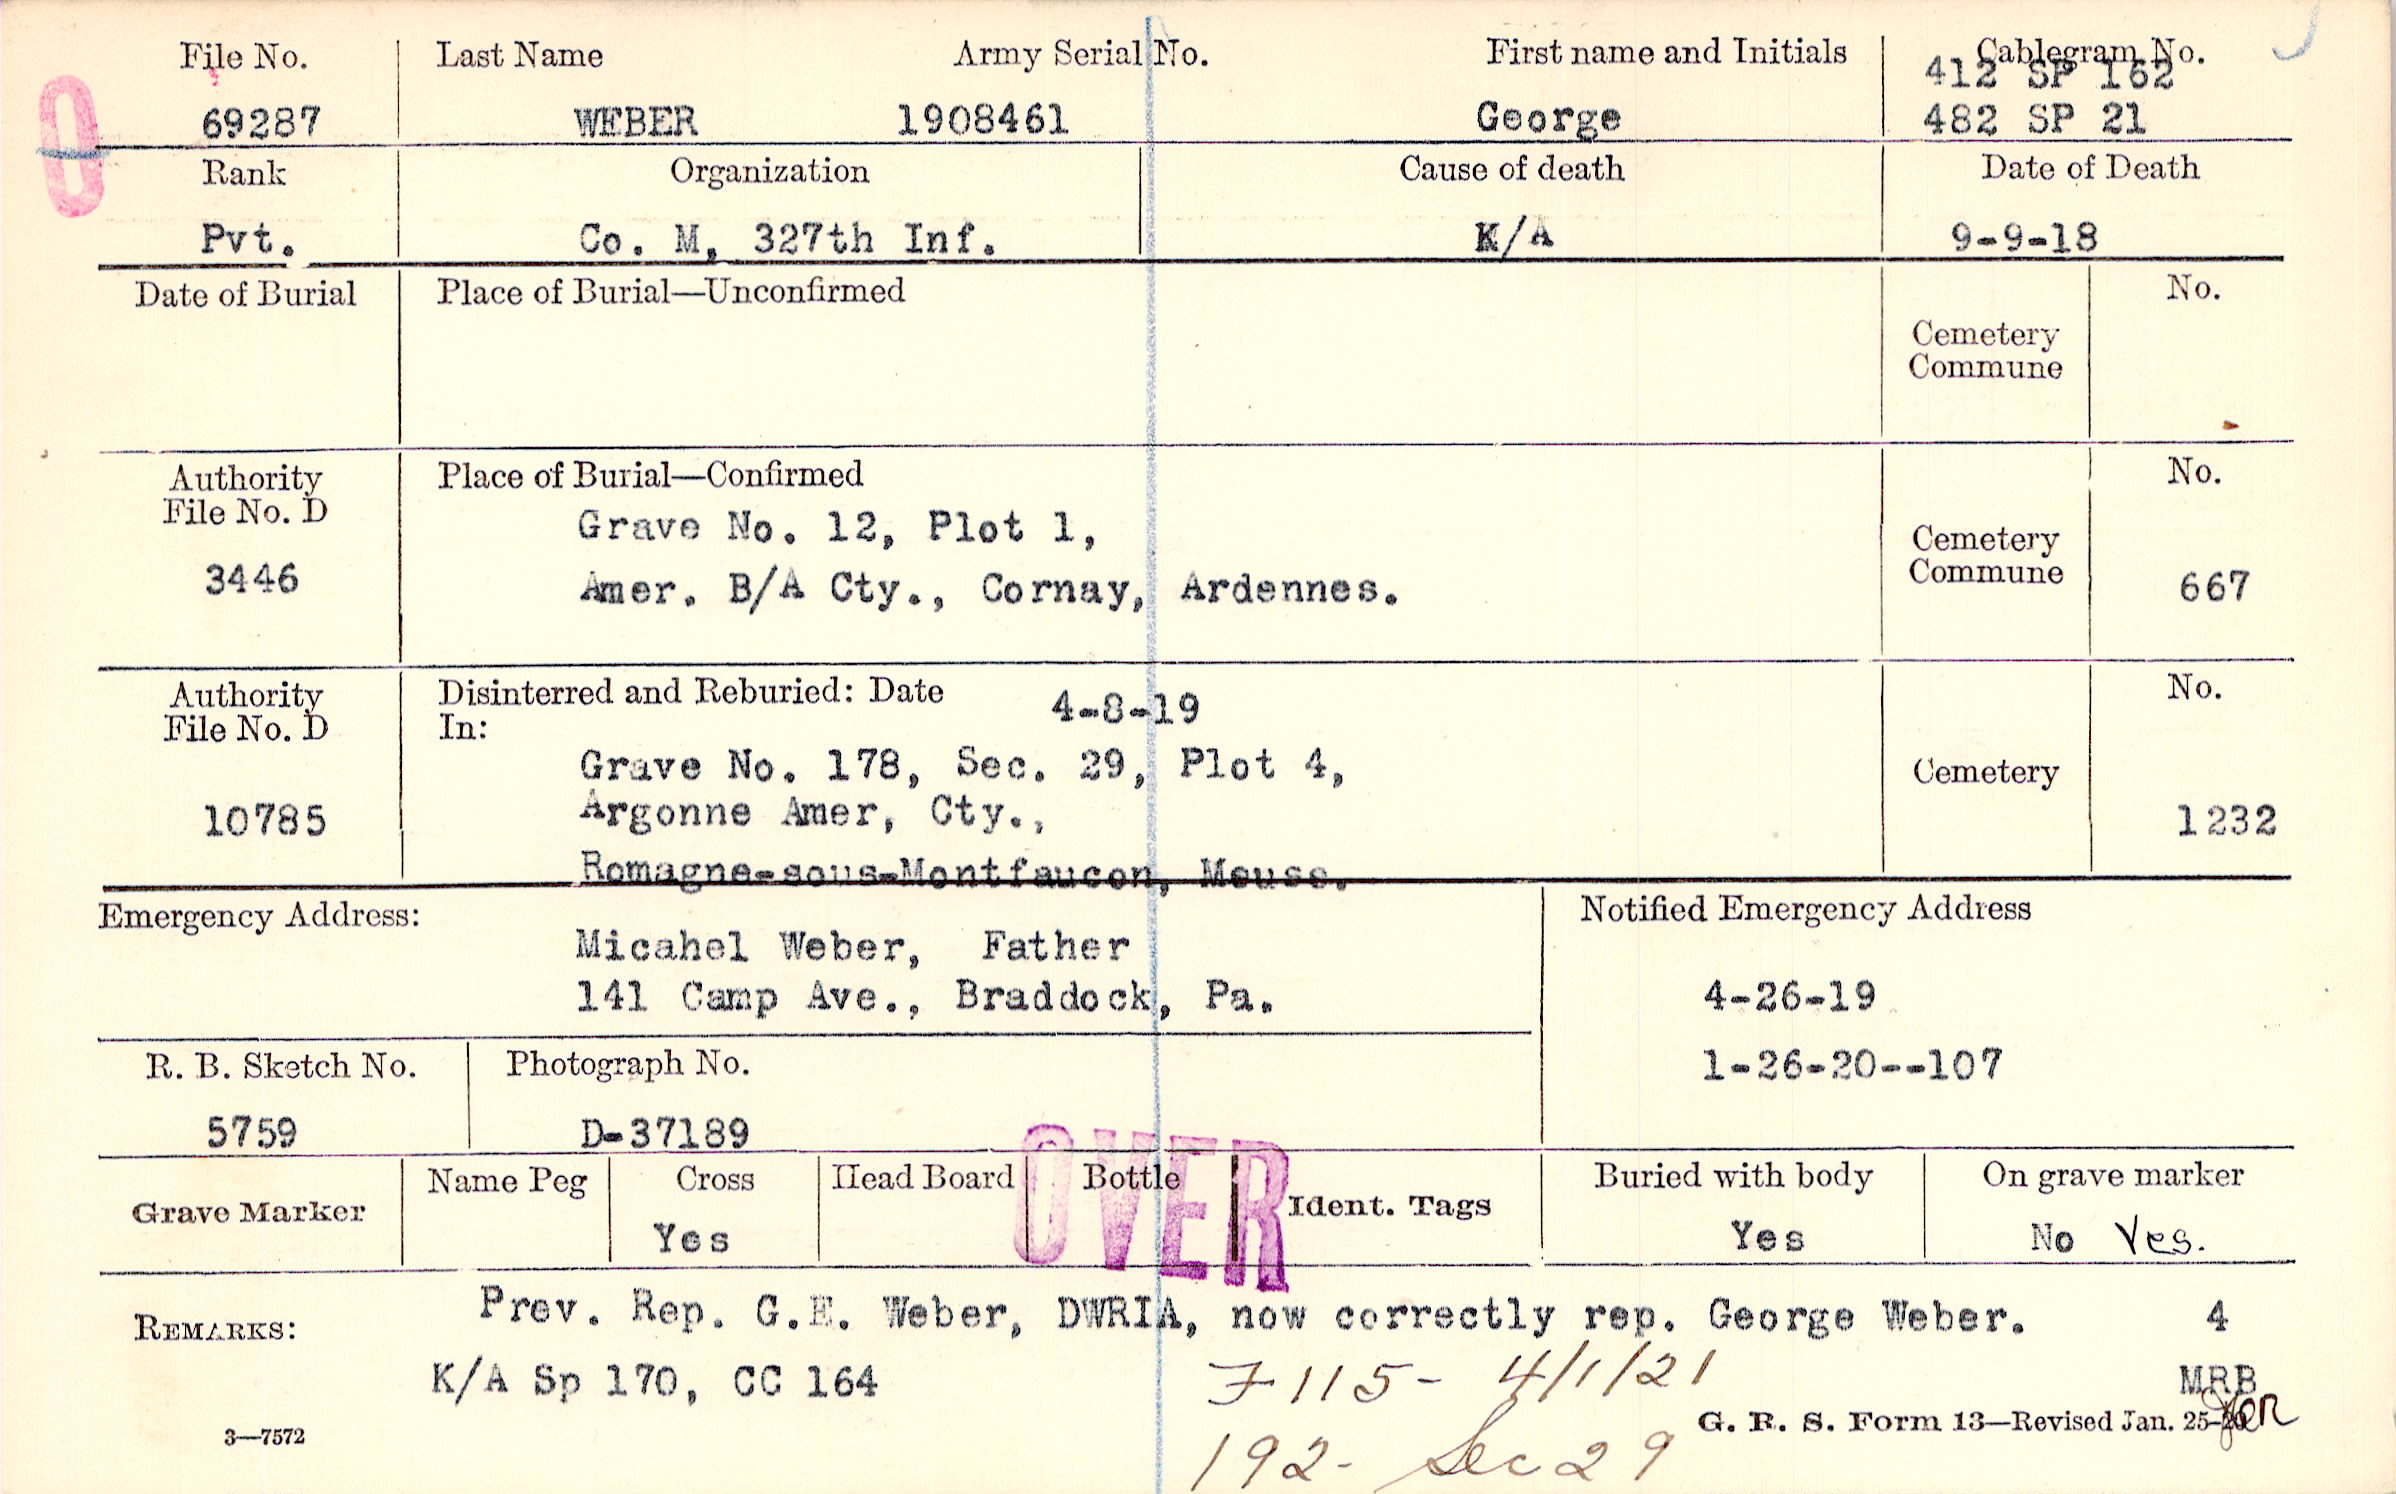 File No. Last Name Army Serial No. First name and Initials Cablegram No.
412 SP 162
69287 WEBER 1908461 George 482 SP 21
Rank Organization Cause of death Date of Death
Pvt. Co. M, 327th Inf. K/A 9-9-18
Date of Burial Place of Burial—Unconfirmed No.
Cemetery
Commune
Authority Place of Burial—Confirmed No.
File No. D
Grave No. 12, Plot 1,
Cemetery
Commune
3446 Amer. B/A Cty., Cornay, Ardennes. 667
Authority Disinterred and Reburied: Date 4-8-19 No.
File No. D In:
Grave No. 178, Sec. 29, Plot 4,
Cemetery
10785 Argonne Amer, Cty., 1232
Romagne-sous-Montfaucon, Meuse.
Emergency Address: Notified Emergency Address
Micahel Weber, Father
141 Camp Ave., Braddock, Pa. 4-26-19
R. B. Sketch No. Photograph No. 1-26-20--107
5759 D-37189
OVER
Grave Marker Name Peg Cross Head Board Bottle Ident. Tags Buried with body On grave marker
Yes Yes No Yes.
REMARKS: Prev. Rep. G.E. Weber, DWRIA, now correctly rep. George Weber. 4
K/A Sp 170, CC 164 F 115- 4/1/21 MRB
3—7572 G. R. S. Form 13—Revised Jan. 25-20
192- Sec 29